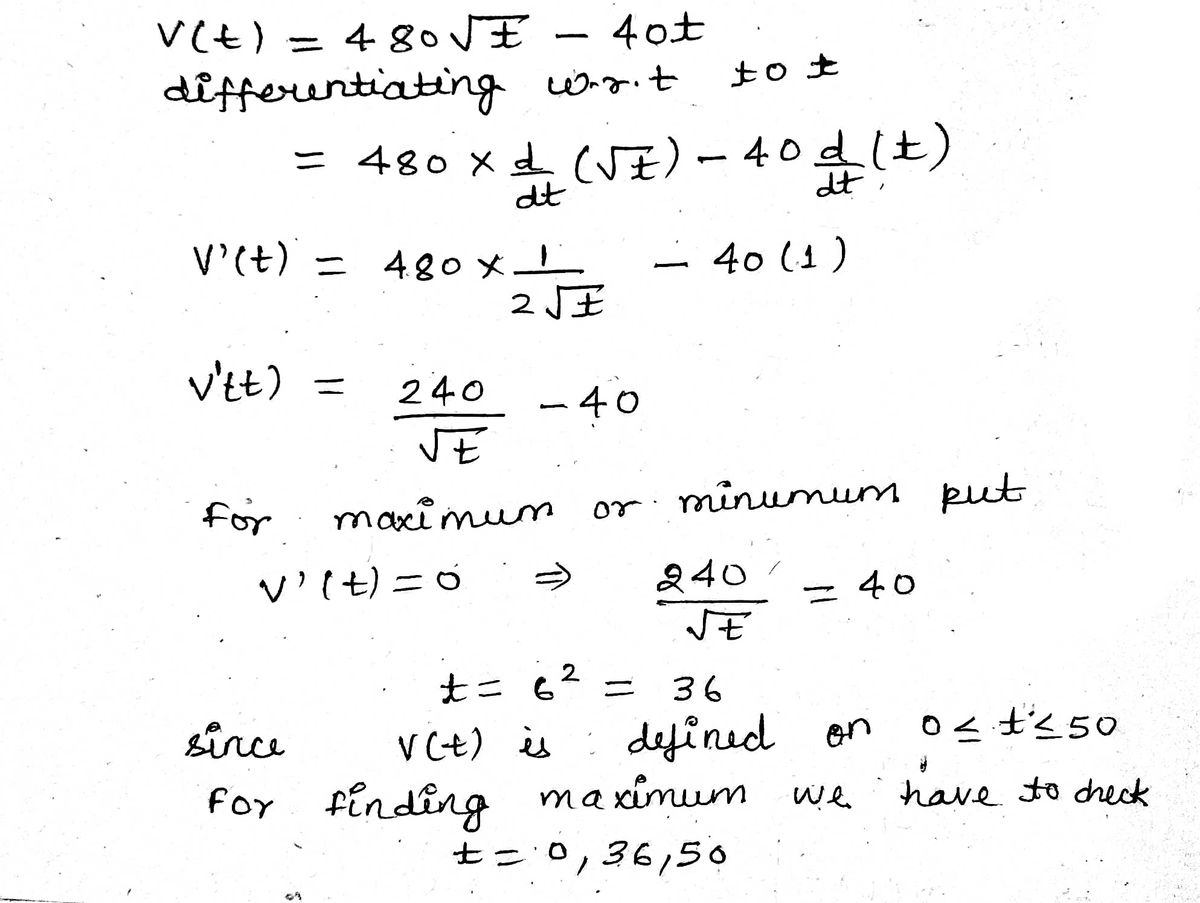 V(t) = 480√t - 40t
differentiating w.r.t to t
= 480 × d/dt (√t) - 40 d/dt (t)
V'(t) = 480 × 1/2√t - 40 (1)
V'(t) = 240/√t - 40
For maximum or minumum put
V'(t) = 0 ⇒ 240/√t = 40
t = 6² = 36
since V(t) is defined on 0 ≤ t ≤ 50
For finding maximum we have to check
t = 0, 36, 50